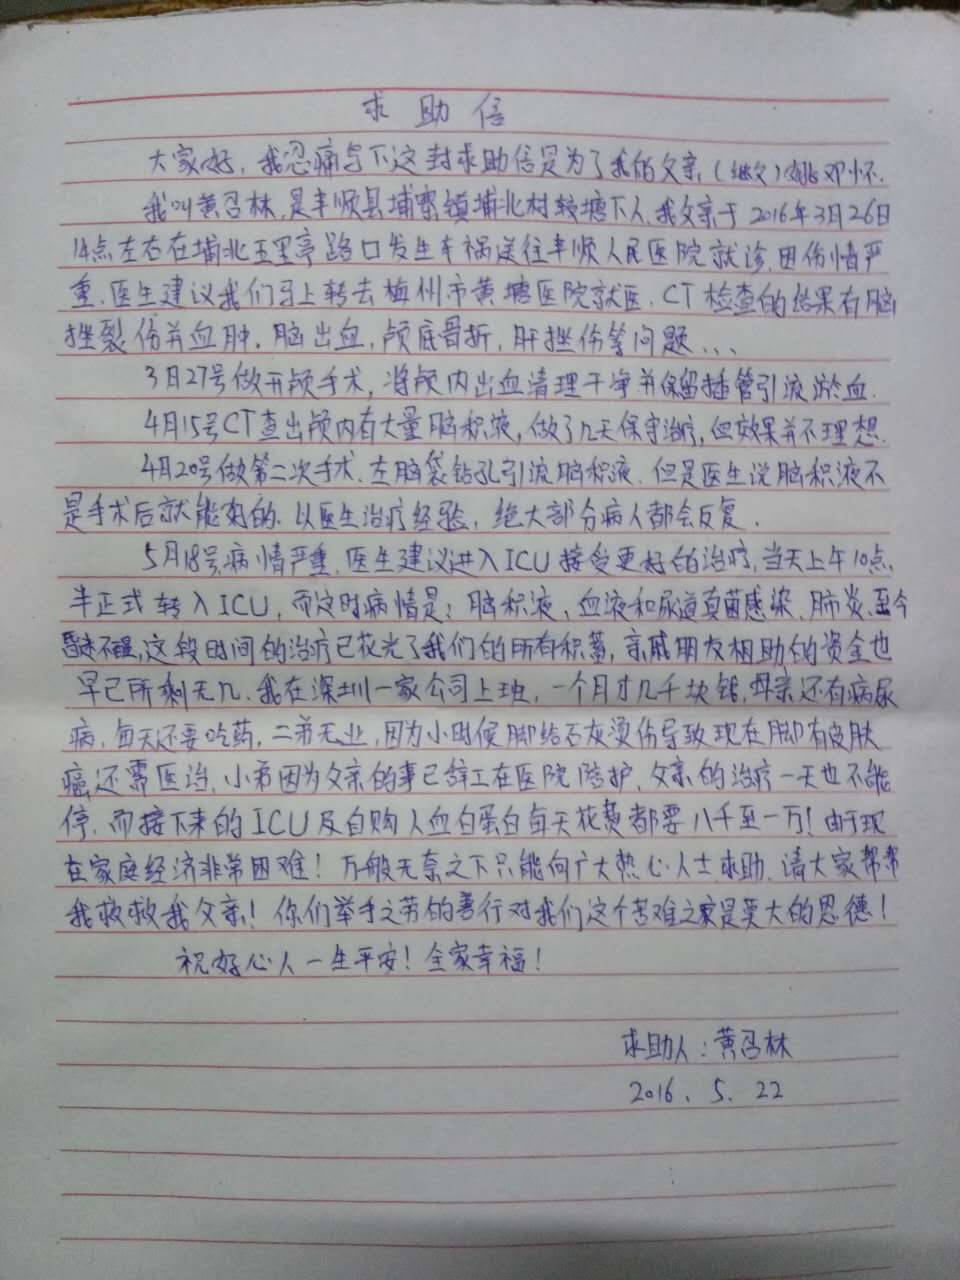 求助信
大家好，我忍痛写下这封求助信是为了我的父亲（继父）姚邓怀.
我叫黄召林，是丰顺县埔寨镇埔北村较塘下人，我父亲于2016年3月26日
14点左右在埔北五里亭路口发生车祸送往丰顺人民医院就诊，因伤情严
重，医生建议我们马上转去梅州市黄塘医院就医，CT检查的结果有脑
挫裂伤并血肿，脑出血，颅底骨折，肝挫伤等问题...
3月27号做开颅手术，将颅内出血清理干净并保留插管引液淤血.
4月15号CT查出颅内有大量脑积液，做了几天保守治疗，但效果并不理想.
4月20号做第二次手术，左脑袋钻孔引流脑积液，但是医生说脑积液不
是手术后就能好的，以医生治疗经验，绝大部分病人都会反复.
5月18号病情严重，医生建议进入ICU接受更好的治疗，当天上午10点
半正式转入ICU，而这时病情是：脑积液、血液和尿道真菌感染、肺炎，至今
昏迷不醒，这段时间的治疗已花光了我们的所有积蓄，亲戚朋友相助的资金也
早已所剩无几，我在深圳一家公司上班，一个月才几千块钱，母亲还有病尿
病，每天还要吃药，二弟无业，因为小时候脚给石灰烫伤导致现在脚有皮肤
癌还需医治，小弟因为父亲的事已辞工在医院陪护，父亲的治疗一天也不能
停，而接下来的ICU及自购人血白蛋白每天花费都要八千至一万！由于现
在家庭经济非常困难！万般无奈之下只能向广大热心人士求助，请大家帮帮
我救救我父亲！你们举手之劳的善行对我们这个苦难之家是莫大的恩德！
祝好心人一生平安！全家幸福！
求助人：黄召林
2016.5.22